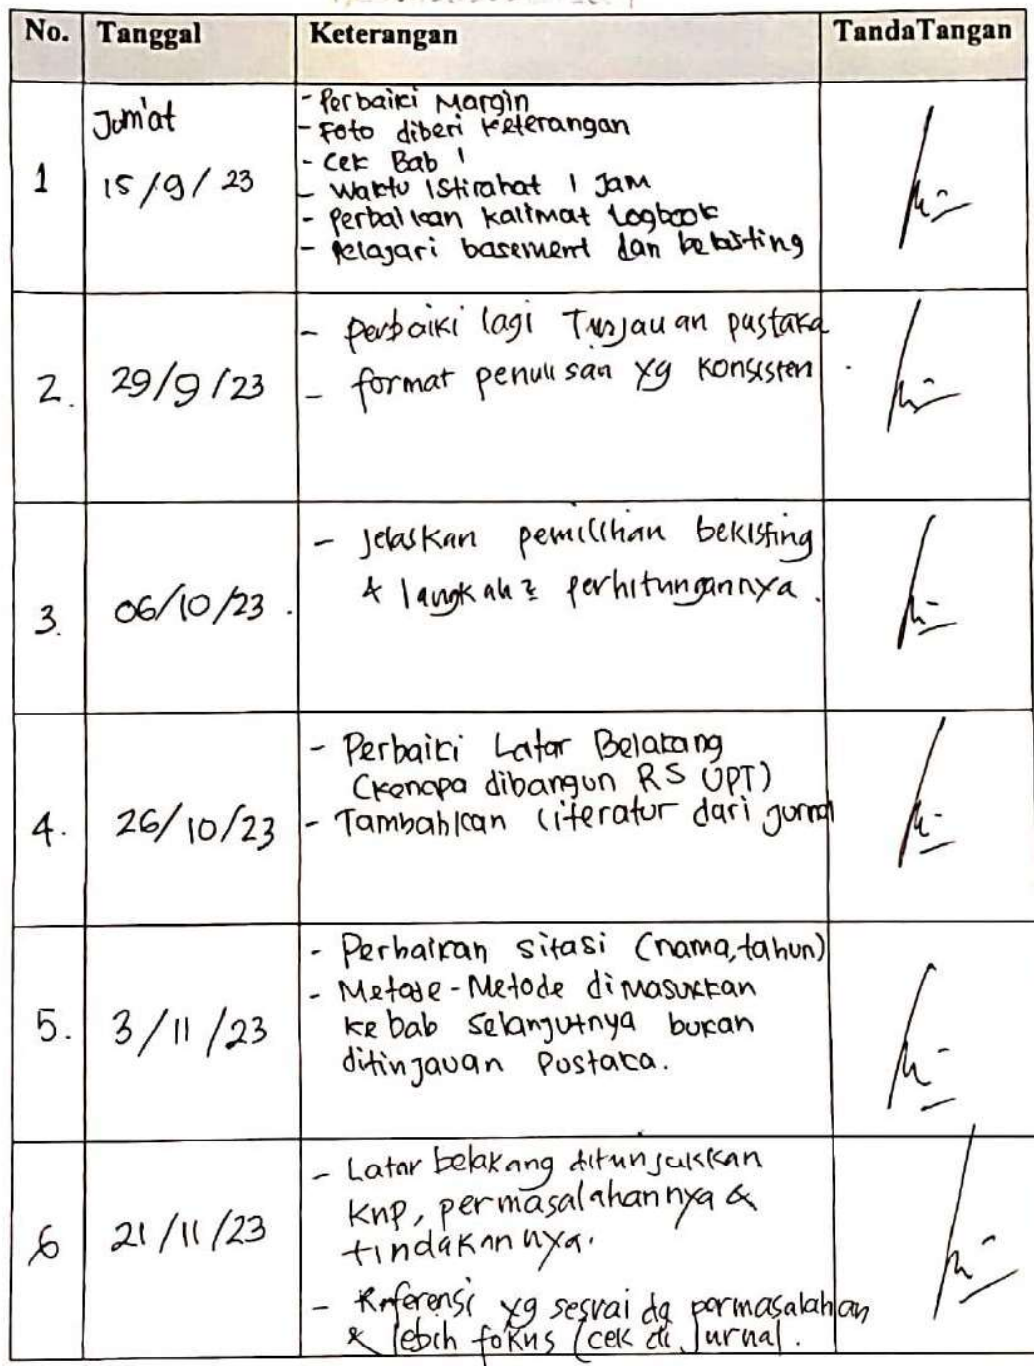 No. Tanggal Keterangan TandaTangan
1
Jum'at
15/9/23
- Perbaiki Margin
- Foto diberi keterangan
- Cek Bab 1
- Waktu istirahat 1 Jam
- Perbaikan kalimat Logbook
- Pelajari basement dan bekisting
2.
29/9/23
- perbaiki lagi Tinjauan pustaka
- format penulisan yg konsisten
3.
06/10/23
- Jelaskan pemilihan bekisting
& langkah2 perhitungannya.
4.
26/10/23
- Perbaiki Latar Belakang
(kenapa dibangun RS UPT)
- Tambahkan literatur dari jurnal
5.
3/11/23
- Perbaikan sitasi (nama, tahun)
- Metode-Metode dimasukkan
ke bab selanjutnya bukan
ditinjauan Pustaka.
6
21/11/23
- Latar belakang ditunjukkan
knp, permasalahannya &
tindakannya.
- Referensi yg sesuai dg permasalahan
& lebih fokus (cek di jurnal.